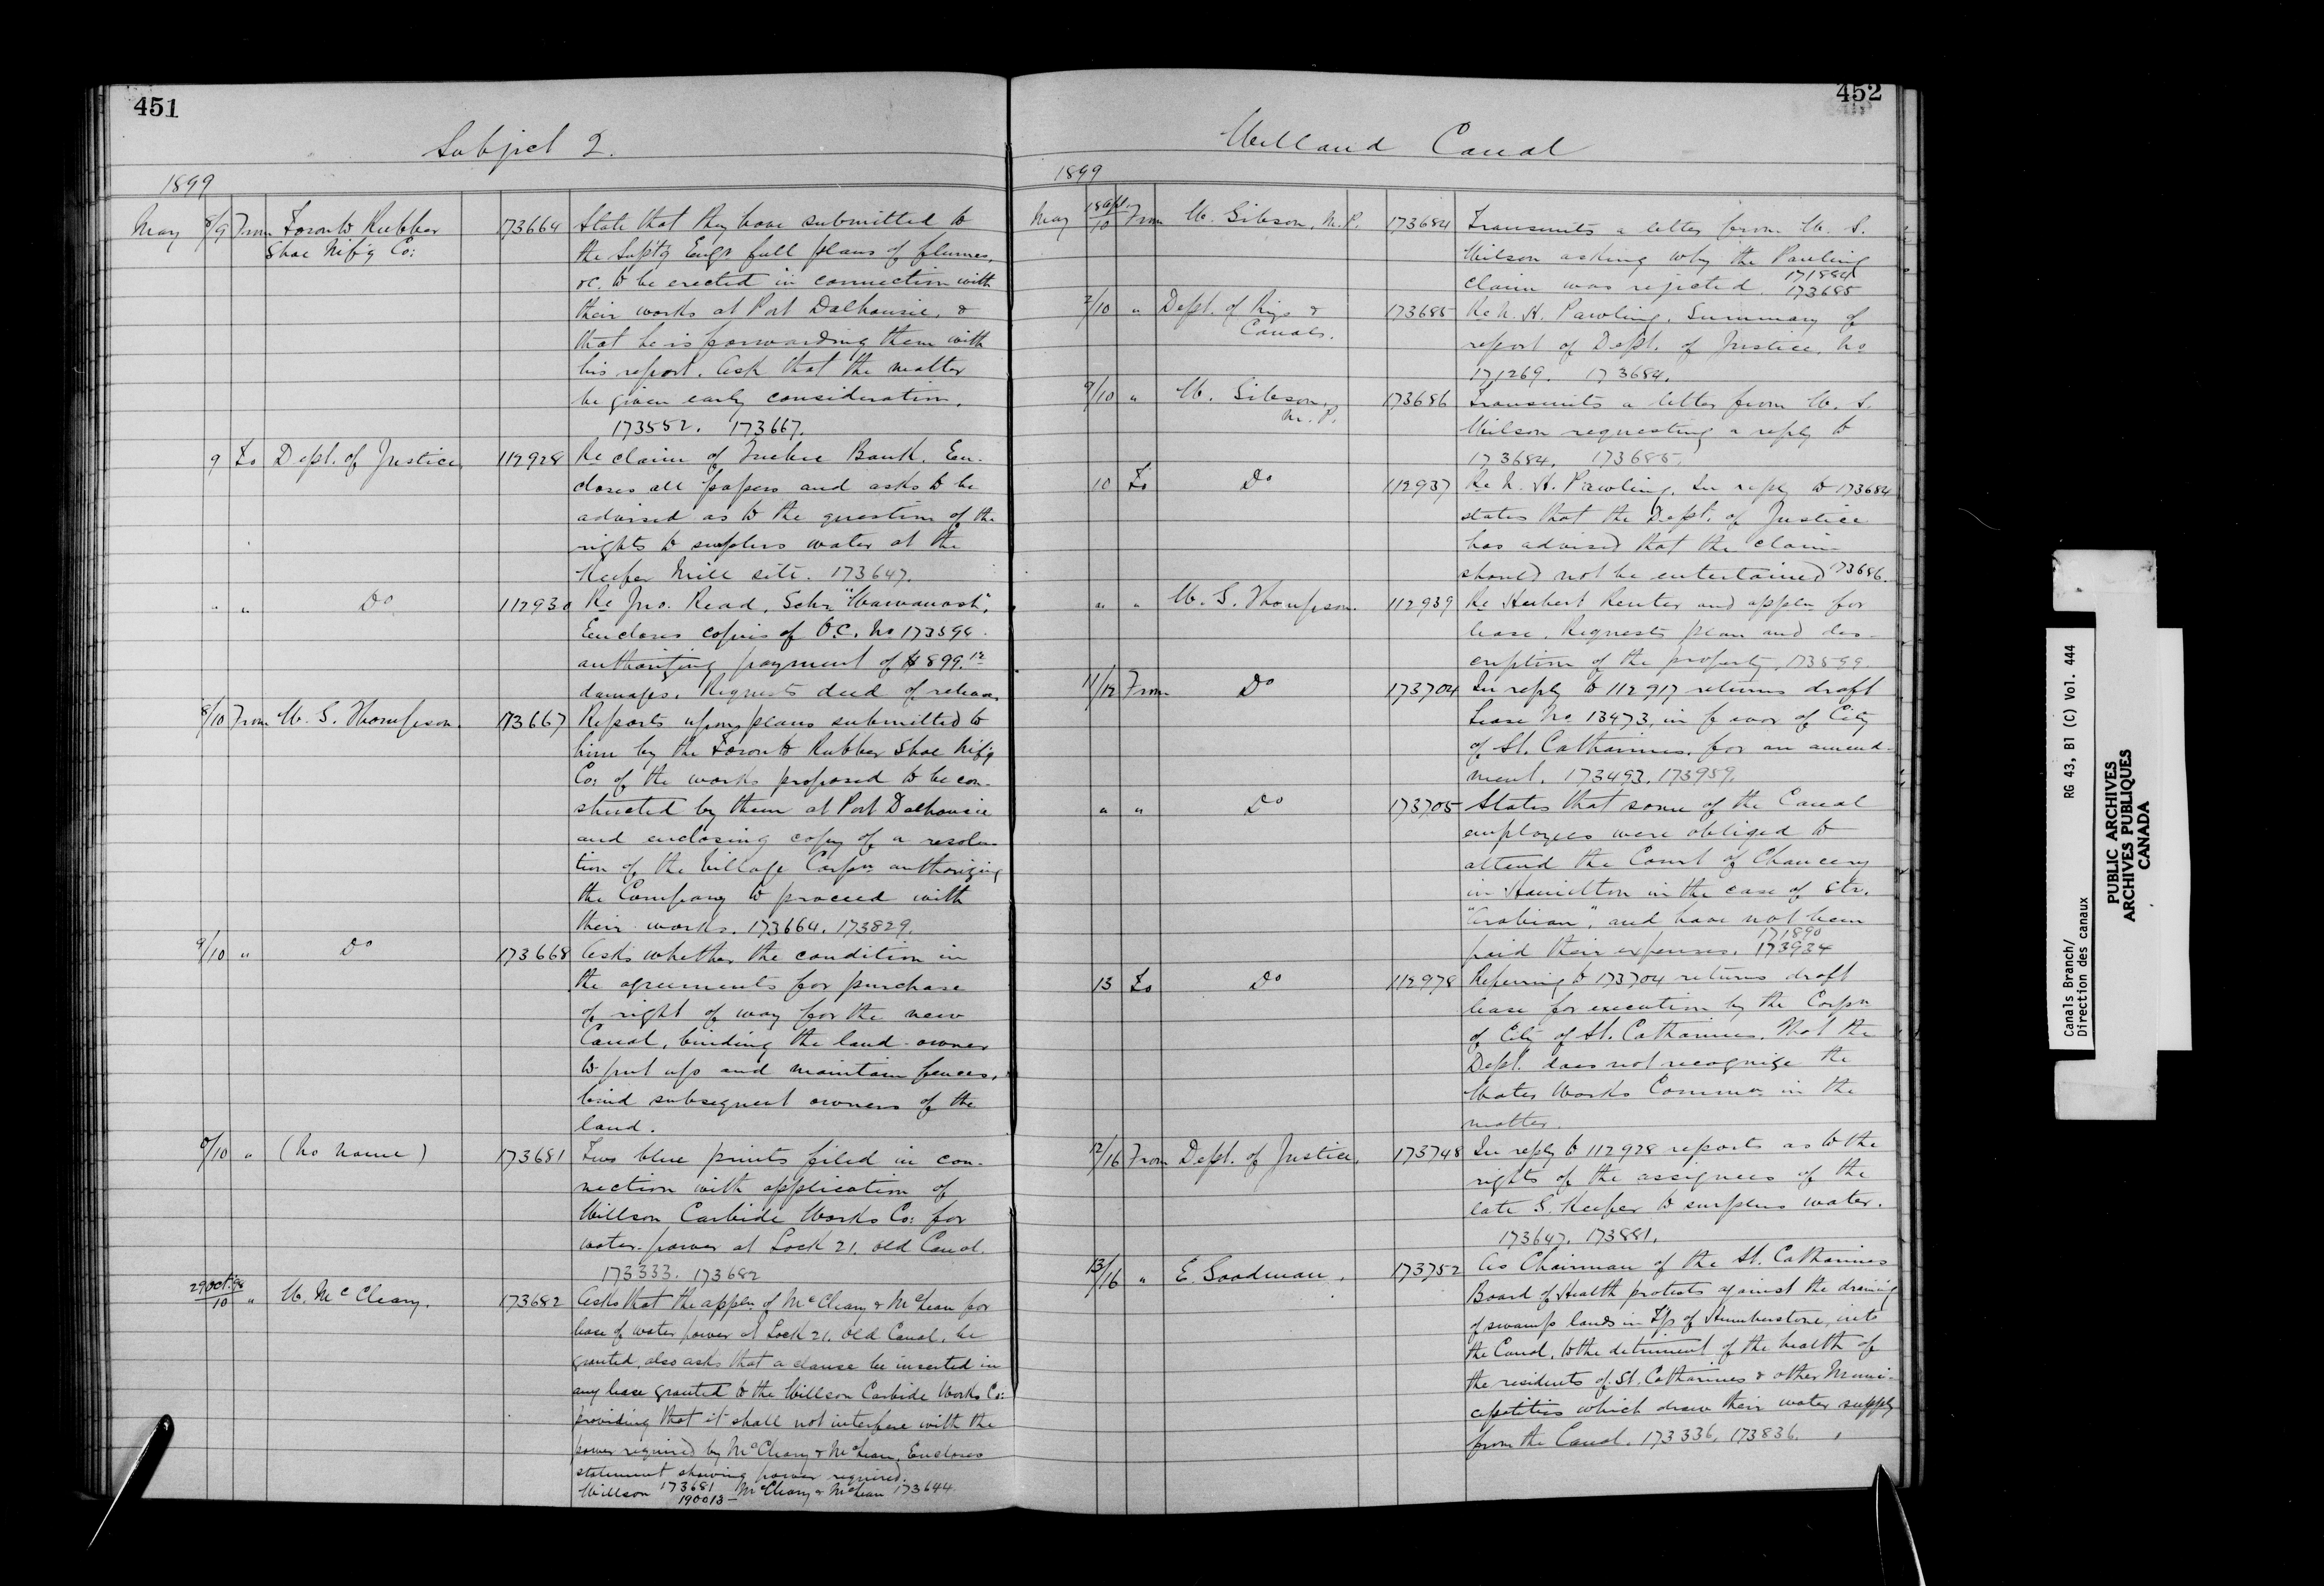 451
Subject 2.
1899
May 8/9 From Toronto Rubber 173664 State that they have submitted to
Shoe Mf'g Co: the Supt'g Engr full plans of flumes,
&c. to be erected in connection with
their works at Port Dalhousie, &
that he is forwarding them with
his report. Ask that the matter
be given early consideration.
173552. 173667.
9 To Dept. of Justice 112928 Re claim of Quebec Bank. En-
closes all papers and asks to be
advised as to the question of the
rights to surplus water at the
Keefer Mill site. 173647.
" " Do 112930 Re Jno. Read, Schr "Wawanosh".
Encloses copies of O.C. No 173594
authorizing payment of $899.12
damages. Requests deed of release
8/10 From W. G. Thompson. 173667 Reports upon plans submitted to
him by the Toronto Rubber Shoe Mf'g
Co: of the works proposed to be con-
structed by them at Port Dalhousie
and enclosing copy of a resolu-
tion of the Village Corpn authorizing
the Company to proceed with
their works. 173664. 173829.
9/10 " Do 173668 Asks whether the condition in
the agreements for purchase
of right of way for the new
Canal, binding the land-owner
to put up and maintain fences,
bind subsequent owners of the
land.
9/10 " (No name) 173681 Two blue prints filed in con-
nection with application of
Willson Carbide Works Co: for
water-power at Lock 21. old Canal.
173333. 173682
29 Oct. 98/10 " W. McCleary. 173682 Asks that the appln of McCleary & McLean for
lease of water power at Lock 21. Old Canal, be
granted, also asks that a clause be inserted in
any lease granted to the Willson Carbide Works Co:
providing that it shall not interfere with the
power required by McCleary & McLean. Encloses
statement showing power required.
Willson 173681 McCleary & McLean 173644.
190013-
452
Welland Canal
1899
May 18 Apl./10 From W. Gibson, M.P. 173684 Transmits a letter from W. S.
Wilson asking why the Pawling
claim was rejected. 171884
173685
2/10 " Dept. of Rys & 173685 Re N. H. Pawling. Summary of
Canals. report of Dept. of Justice. No
171269. 173684.
9/10 " W. Gibson, 173686 Transmits a letter from W. S.
M.P. Wilson requesting a reply to
173684. 173685.
10 To Do 112937 Re N. H. Pawling. In reply to 173684
states that the Dept. of Justice
has advised that the claim
should not be entertained 173686.
" " W. G. Thompson. 112939 Re Herbert Reuter and appln for
lease. Requests plan and des-
cription of the property. 173599
11/12 From Do 173704 In reply to 112917 returns draft
Lease No 13473, in favor of City
of St. Catharines, for an amend-
ment. 173493. 173959.
" " Do 173705 States that some of the Canal
employees were obliged to
attend the Court of Chancery
in Hamilton in the case of Str.
"Arabian", and have not been
paid their expenses. 171890
173934
13 To Do 112978 Referring to 173704 returns draft
lease for execution by the Corpn
of City of St. Catharines. That the
Dept. does not recognize the
Water Works Commn in the
matter.
12/16 From Dept. of Justice, 173748 In reply to 112928 reports as to the
rights of the assignees of the
late S. Keefer to surplus water.
173647. 173881.
13/16 " E. Goodman. 173752 As Chairman of the St. Catharines
Board of Health protests against the draining
of swamp lands in Tp. of Humberstone, into
the Canal, to the detriment of the health of
the residents of St. Catharines & other Muni-
cipalities which draw their water supply
from the Canal. 173336. 173836.
Canals Branch/
Direction des canaux
RG 43, B1 (C) Vol. 444
PUBLIC ARCHIVES
ARCHIVES PUBLIQUES
CANADA